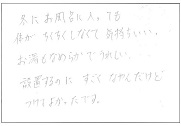 冬にお風呂に入っても
体がちくちくしなくて気持ちいい。
お湯もなめらかでうれしい。
設置するのにすごくなやんだけど
つけてよかったです。